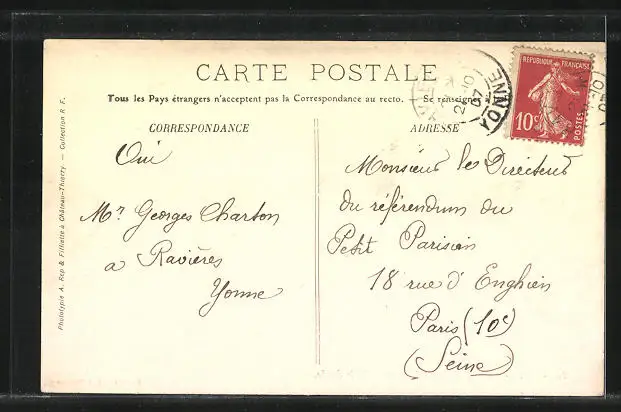 CARTE POSTALE
Tous les Pays étrangers n'acceptent pas la Correspondance au recto. — Se renseigner à
CORRESPONDANCE
Oui
Mr Georges Charton
a Ravières
Yonne
ADRESSE
Monsieur les Directeurs
du référendum du
Petit Parisien
18 rue d'Enghien
Paris (10e)
(Seine)
RÉPUBLIQUE FRANÇAISE
10c
POSTES
YONNE
07
Phototypie A. Rep & Filliette à Château-Thierry. — Collection R. F.